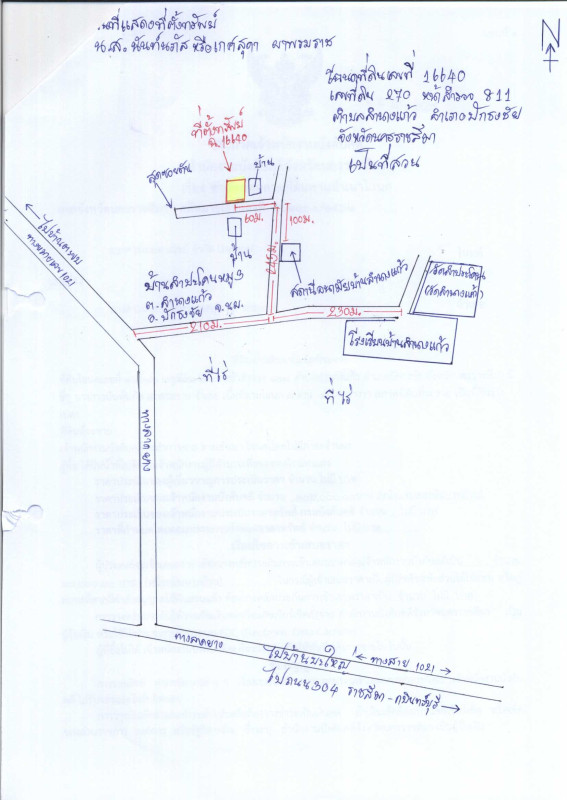 แผนที่แสดงที่ตั้งทรัพย์
น.ส. นันท์นภัส หรือเกศสุดา ผาพรมราช
N
โฉนดที่ดินเลขที่ 16640
เลขที่ดิน 270 หน้าสำรวจ 811
ตำบลลำนางแก้ว อำเภอปักธงชัย
จังหวัดนครราชสีมา
เป็นที่สวน
ที่ตั้งทรัพย์
ฉ.16640
บ้าน
สุดซอยตัน
60ม.
100ม.
บ้าน
245ม.
สถานีอนามัยบ้านลำนางแก้ว
บ้านลำประโคนหมู่ 3
ต.ลำนางแก้ว
อ.ปักธงชัย จ.นม.
วัดลำประโคน
(วัดลำนางแก้ว)
210ม.
230ม.
โรงเรียนบ้านลำนางแก้ว
ทางสาย 1021
ที่ไร่
ที่ไร่
ทางลาดยาง
ทางลาดยาง
ไปบ้านบุใหญ่
ทางสาย 1021
ไปถนน 304 ราชสีมา-กบินทร์บุรี